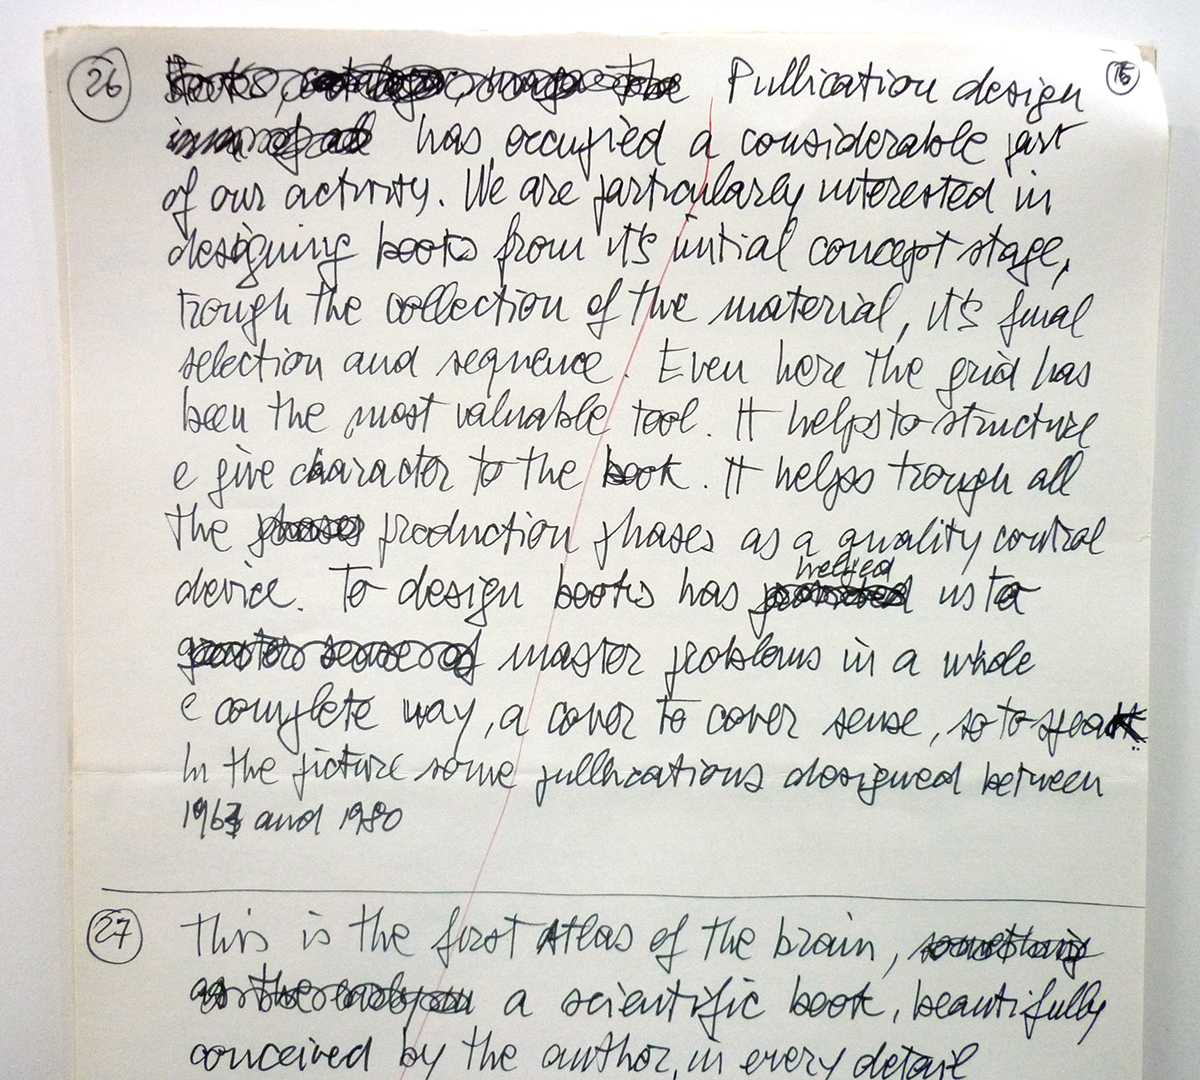 26 Publication design 15
has occupied a considerable part
of our activity. We are particularly interested in
designing books from it's initial concept stage,
trough the collection of the material, it's final
selection and sequence. Even here the grid has
been the most valuable tool. It helps to structure
e give character to the book. It helps trough all
the phases production phases as a quality control
helped
device. To design books has us to
greater sense of master problems in a whole
e complete way, a cover to cover sense, so to speak
In the picture some pubblications designed between
1963 and 1980
27 This is the first Atlas of the brain, something
a scientific book, beautifully
conceived by the author, in every detail